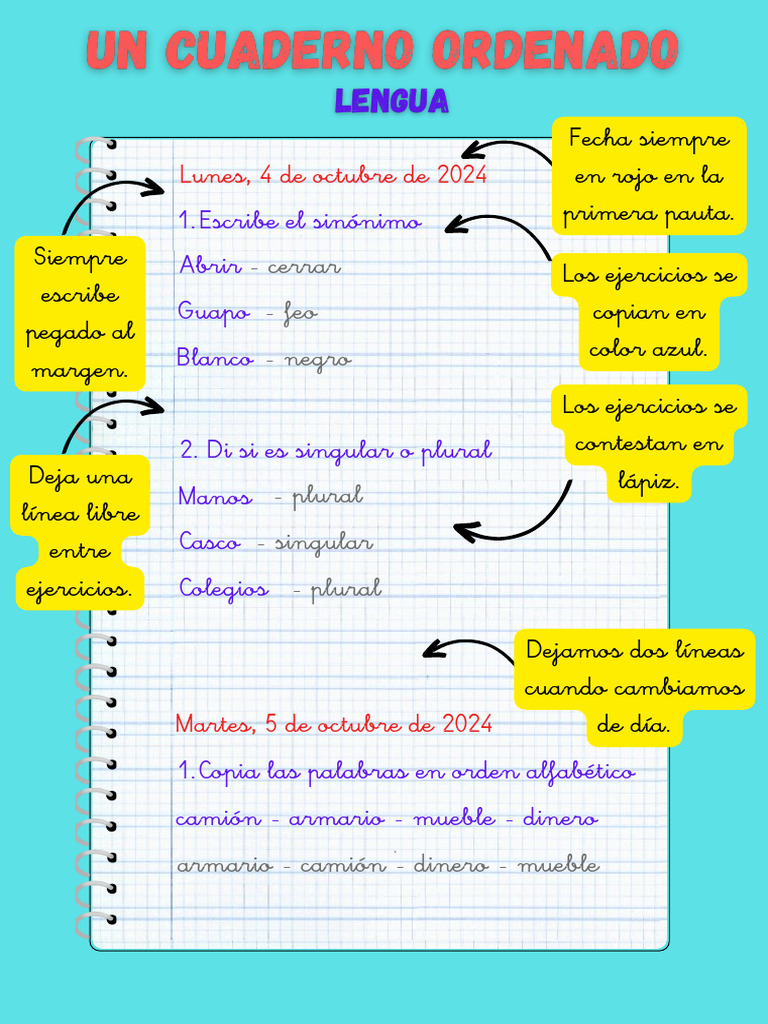 UN CUADERNO ORDENADO
LENGUA
Fecha siempre
en rojo en la
primera pauta.
Lunes, 4 de octubre de 2024
1. Escribe el sinónimo
Siempre
escribe
pegado al
margen.
Los ejercicios se
copian en
color azul.
Abrir - cerrar
Guapo - feo
Blanco - negro
Los ejercicios se
contestan en
lápiz.
Deja una
línea libre
entre
ejercicios.
2. Di si es singular o plural
Manos - plural
Casco - singular
Colegios - plural
Dejamos dos líneas
cuando cambiamos
de día.
Martes, 5 de octubre de 2024
1. Copia las palabras en orden alfabético
camión - armario - mueble - dinero
armario - camión - dinero - mueble